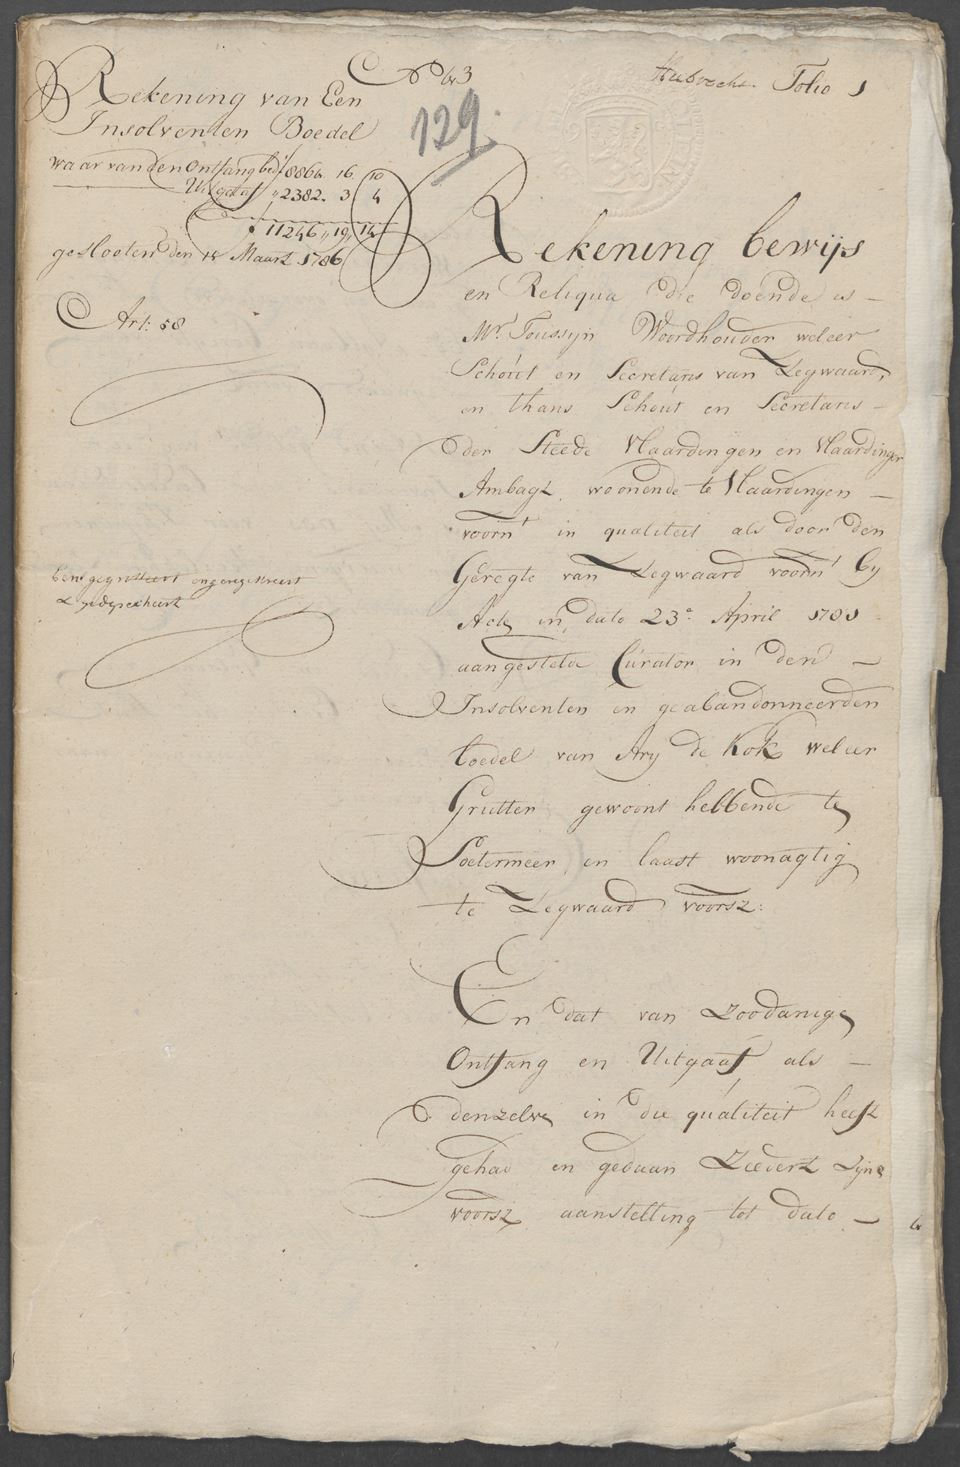 No 43
Hubrecht. Folio 1
129.
Rekening van Een
Insolventen Boedel
waar van den Ontfang bed. f 8864. 16. 10
Uitgaaf „ 2382. 3. 4
f 11246„ 19„ 14
geslooten den 14 Maart 1786
Art: 58
Rekening bewijs
en Reliqua die doende is —
Mr. Toussijn Woordhouder weleer
Schout en Secretaris van Zegwaard,
en thans Schout en Secretaris —
der Steede Vlaardingen en Vlaardinger
Ambagt, woonende te Vlaardingen —
voornt in qualiteit als door den
Geregte van Zegwaard voornt by
Acte in dato 23e April 1781
aangestelde Curator in den —
Insolventen en geabandonneerden
boedel van Ary de Kok weleer
Grutter gewoont hebbende te
Soetermeer, en laast woonagtig
te Zegwaard voorsz:
En dat van zoodanige
Ontfang en Uitgaaf als —
denzelve in die qualiteit heeft
gehad en gedaan zedert zyne
voorsz aanstelling tot dato —